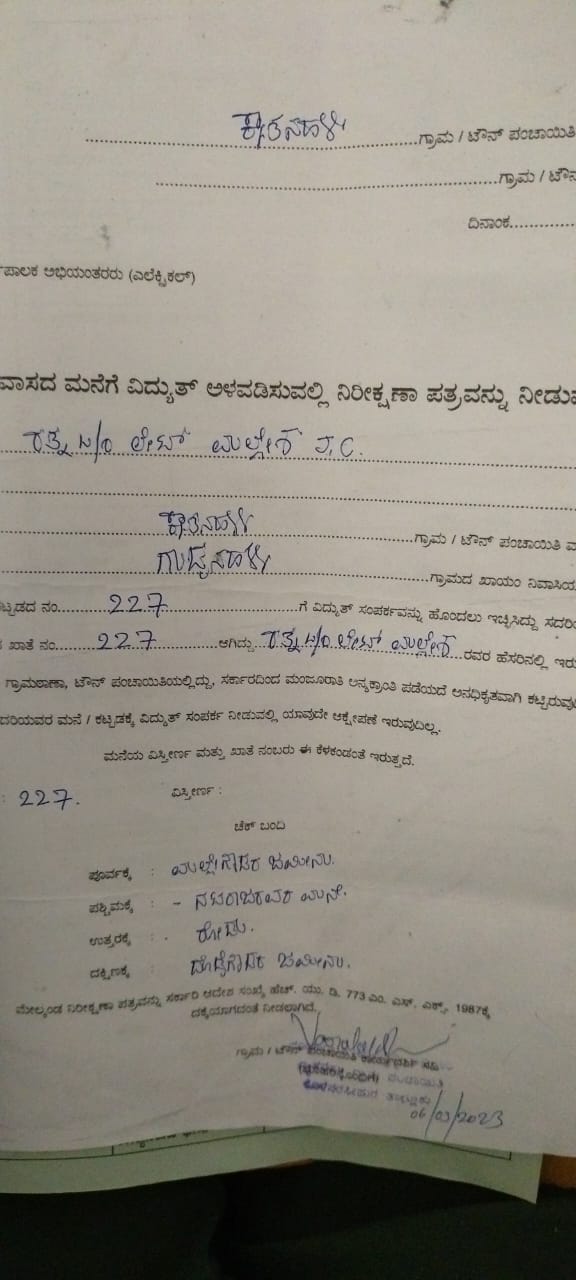 ಕಾತನಹಳ್ಳಿ ಗ್ರಾಮ / ಟೌನ್ ಪಂಚಾಯಿತಿ
ಗ್ರಾಮ / ಟೌನ
ದಿನಾಂಕ
ಪಾಲಕ ಅಭಿಯಂತರರು (ಎಲೆಕ್ಟ್ರಿಕಲ್)
ವಾಸದ ಮನೆಗೆ ವಿದ್ಯುತ್ ಅಳವಡಿಸುವಲ್ಲಿ ನಿರೀಕ್ಷಣಾ ಪತ್ರವನ್ನು ನೀಡುವ
ರತ್ನ W/o ಲೇಟ್ ಮಲ್ಲೇಶ J.C.
ಕಾತನಹಳ್ಳಿ ಗ್ರಾಮ / ಟೌನ್ ಪಂಚಾಯಿತಿ
ಗ್ರಾಮದ ಖಾಯಂ ನಿವಾಸಿಯ
ಕಟ್ಟಡದ ನಂ. 227 ಗೆ ವಿದ್ಯುತ್ ಸಂಪರ್ಕವನ್ನು ಹೊಂದಲು ಇಚ್ಛಿಸಿದ್ದು ಸದರಿ
ಖಾತೆ ನಂ. 227 ಆಗಿದ್ದು ರತ್ನ W/o ಲೇಟ್ ಮಲ್ಲೇಶ ರವರ ಹೆಸರಿನಲ್ಲಿ ಇರು
ಗ್ರಾಮಠಾಣಾ, ಟೌನ್ ಪಂಚಾಯಿತಿಯಲ್ಲಿದ್ದು, ಸರ್ಕಾರದಿಂದ ಮಂಜೂರಾತಿ ಅನ್ಯಕ್ರಾಂತಿ ಪಡೆಯದೆ ಅನಧಿಕೃತವಾಗಿ ಕಟ್ಟಿರುವು
ದರಿಯವರ ಮನೆ / ಕಟ್ಟಡಕ್ಕೆ ವಿದ್ಯುತ್ ಸಂಪರ್ಕ ನೀಡುವಲ್ಲಿ ಯಾವುದೇ ಆಕ್ಷೇಪಣೆ ಇರುವುದಿಲ್ಲ.
ಮನೆಯ ವಿಸ್ತೀರ್ಣ ಮತ್ತು ಖಾತೆ ನಂಬರು ಈ ಕೆಳಕಂಡಂತೆ ಇರುತ್ತದೆ.
: 227. ವಿಸ್ತೀರ್ಣ :
ಚೆಕ್ ಬಂದಿ
ಪೂರ್ವಕ್ಕೆ : ಮಲ್ಲೇಗೌಡರ ಜಮೀನು.
ಪಶ್ಚಿಮಕ್ಕೆ : - ನಟರಾಜರವರ ಮನೆ.
ಉತ್ತರಕ್ಕೆ : ರೋಡು.
ದಕ್ಷಿಣಕ್ಕೆ : ದೊಡ್ಡೇಗೌಡರ ಜಮೀನು.
ಮೇಲ್ಕಂಡ ನಿರೀಕ್ಷಣಾ ಪತ್ರವನ್ನು ಸರ್ಕಾರಿ ಆದೇಶ ಸಂಖ್ಯೆ ಹೆಚ್. ಯು. ಡಿ. 773 ಎಂ. ಎಸ್. ಎಕ್ಸ್. 1987ಕ್ಕೆ
ದಕ್ಕೆಯಾಗದಂತೆ ನೀಡಲಾಗಿದೆ.
ಗ್ರಾಮ / ಟೌನ್ ಪಂಚಾಯಿತಿ ಕಾರ್ಯದರ್ಶಿ ಸಹಿ
06/03/2023